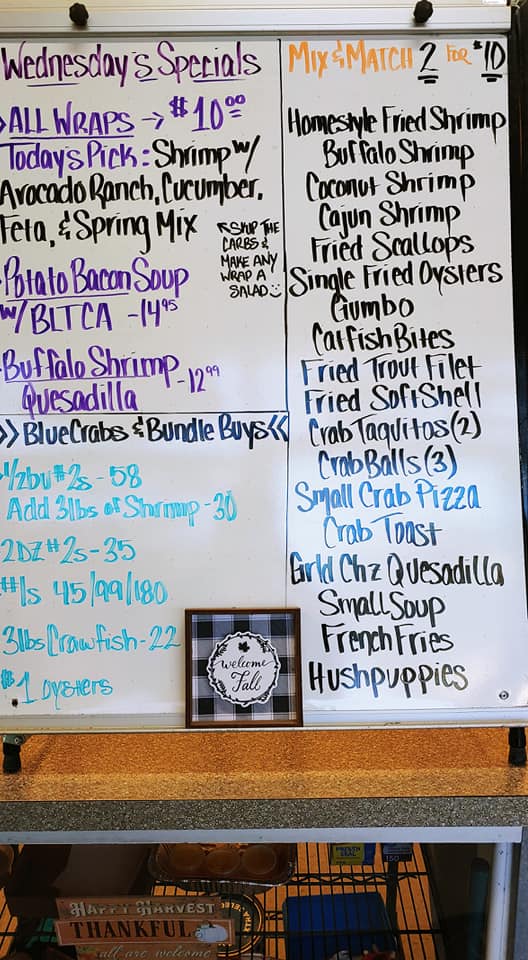 Wednesday's Specials
ALL WRAPS → $10.00
Today's Pick: Shrimp w/
Avocado Ranch, Cucumber,
Feta, & Spring Mix
↖ SKIP THE
CARBS &
MAKE ANY
WRAP A
SALAD
Potato Bacon Soup
w/ BLTCA - 14.95
Buffalo Shrimp
Quesadilla - 12.99
>> Blue Crabs & Bundle Buys <<
1/2bu #2s - 58
Add 3lbs of Shrimp - 30
2DZ #2s - 35
#1s 45/99/180
3lbs Crawfish - 22
$1 oysters
MIX & MATCH 2 FOR $10
Homestyle Fried Shrimp
Buffalo Shrimp
Coconut Shrimp
Cajun Shrimp
Fried Scallops
Single Fried Oysters
Gumbo
Catfish Bites
Fried Trout Filet
Fried Soft Shell
Crab Taquitos (2)
Crab Balls (3)
Small Crab Pizza
Crab Toast
Grld Chz Quesadilla
Small Soup
French Fries
Hushpuppies
welcome
Fall
HAPPY HARVEST
THANKFUL
all are welcome